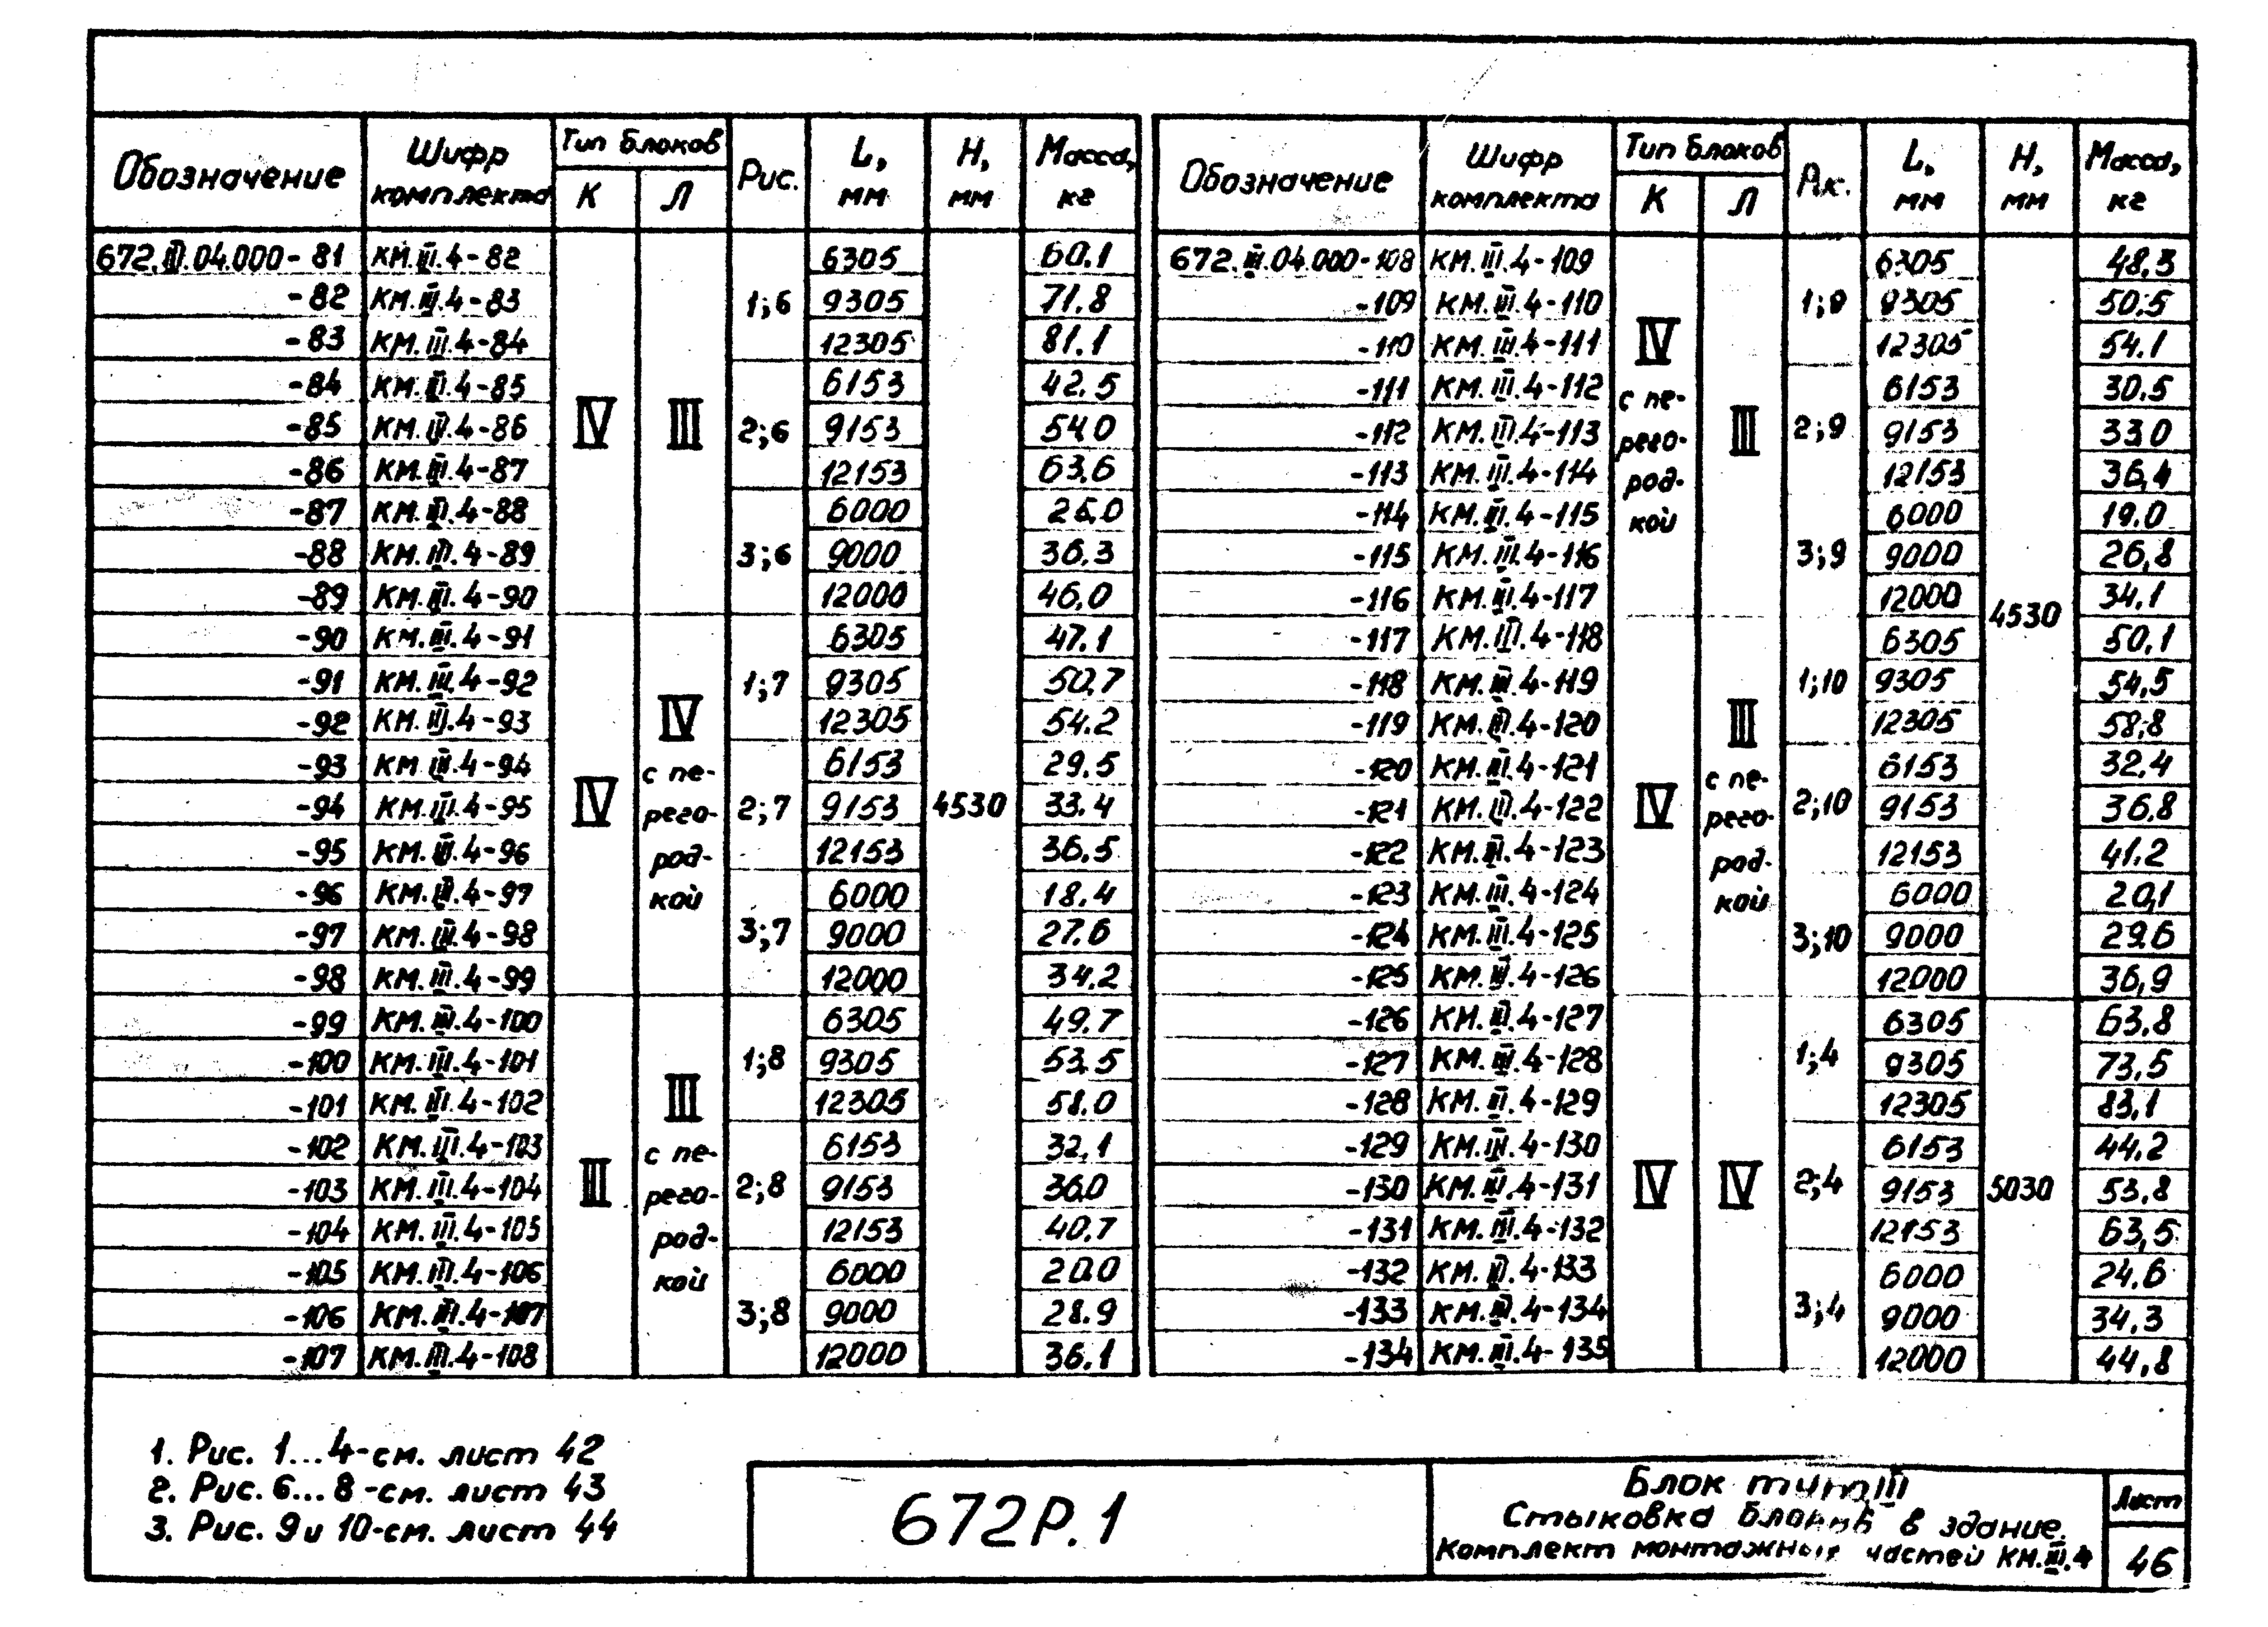 Обозначение | Шифр комплекта | Тип блоков К | Л | Рис. | L, мм | H, мм | Масса, кг
672.III.04.000-81 | КМ.III.4-82 | IV | III | 1;6 | 6305 | 4530 | 60.1
-82 | КМ.III.4-83 | 9305 | 71.8
-83 | КМ.III.4-84 | 12305 | 81.1
-84 | КМ.III.4-85 | 2;6 | 6153 | 42.5
-85 | КМ.III.4-86 | 9153 | 54.0
-86 | КМ.III.4-87 | 12153 | 63.6
-87 | КМ.III.4-88 | 3;6 | 6000 | 26.0
-88 | КМ.III.4-89 | 9000 | 36.3
-89 | КМ.III.4-90 | 12000 | 46.0
-90 | КМ.III.4-91 | IV | IV с перегородкой | 1;7 | 6305 | 47.1
-91 | КМ.III.4-92 | 9305 | 50.7
-92 | КМ.III.4-93 | 12305 | 54.2
-93 | КМ.III.4-94 | 2;7 | 6153 | 29.5
-94 | КМ.III.4-95 | 9153 | 33.4
-95 | КМ.III.4-96 | 12153 | 36.5
-96 | КМ.III.4-97 | 3;7 | 6000 | 18.4
-97 | КМ.III.4-98 | 9000 | 27.6
-98 | КМ.III.4-99 | 12000 | 34.2
-99 | КМ.III.4-100 | III | III с перегородкой | 1;8 | 6305 | 49.7
-100 | КМ.III.4-101 | 9305 | 53.5
-101 | КМ.III.4-102 | 12305 | 58.0
-102 | КМ.III.4-103 | 2;8 | 6153 | 32,1
-103 | КМ.III.4-104 | 9153 | 36.0
-104 | КМ.III.4-105 | 12153 | 40.7
-105 | КМ.III.4-106 | 3;8 | 6000 | 20.0
-106 | КМ.III.4-107 | 9000 | 28.9
-107 | КМ.III.4-108 | 12000 | 36.1
Обозначение | Шифр комплекта | Тип блоков К | Л | Рис. | L, мм | H, мм | Масса, кг
672.III.04.000-108 | КМ.III.4-109 | IV с перегородкой | III | 1;9 | 6305 | 4530 | 48.3
-109 | КМ.III.4-110 | 9305 | 50.5
-110 | КМ.III.4-111 | 12305 | 54.1
-111 | КМ.III.4-112 | 2;9 | 6153 | 30.5
-112 | КМ.III.4-113 | 9153 | 33.0
-113 | КМ.III.4-114 | 12153 | 36,4
-114 | КМ.III.4-115 | 3;9 | 6000 | 19.0
-115 | КМ.III.4-116 | 9000 | 26,8
-116 | КМ.III.4-117 | 12000 | 34,1
-117 | КМ.III.4-118 | IV | III с перегородкой | 1;10 | 6305 | 50,1
-118 | КМ.III.4-119 | 9305 | 54,5
-119 | КМ.III.4-120 | 12305 | 58,8
-120 | КМ.III.4-121 | 2;10 | 6153 | 32.4
-121 | КМ.III.4-122 | 9153 | 36.8
-122 | КМ.III.4-123 | 12153 | 41.2
-123 | КМ.III.4-124 | 3;10 | 6000 | 20,1
-124 | КМ.III.4-125 | 9000 | 29.6
-125 | КМ.III.4-126 | 12000 | 36,9
-126 | КМ.III.4-127 | IV | IV | 1;4 | 6305 | 5030 | 63.8
-127 | КМ.III.4-128 | 9305 | 73,5
-128 | КМ.III.4-129 | 12305 | 83,1
-129 | КМ.III.4-130 | 2;4 | 6153 | 44,2
-130 | КМ.III.4-131 | 9153 | 53,8
-131 | КМ.III.4-132 | 12153 | 63,5
-132 | КМ.III.4-133 | 3;4 | 6000 | 24.6
-133 | КМ.III.4-134 | 9000 | 34,3
-134 | КМ.III.4-135 | 12000 | 44,8
1. Рис. 1...4-см. лист 42
2. Рис. 6...8-см. лист 43
3. Рис. 9 и 10-см. лист 44
672Р.1
Блок типа III
Стыковка блоков в здание.
Комплект монтажных частей КМ.III.4
Лист
46